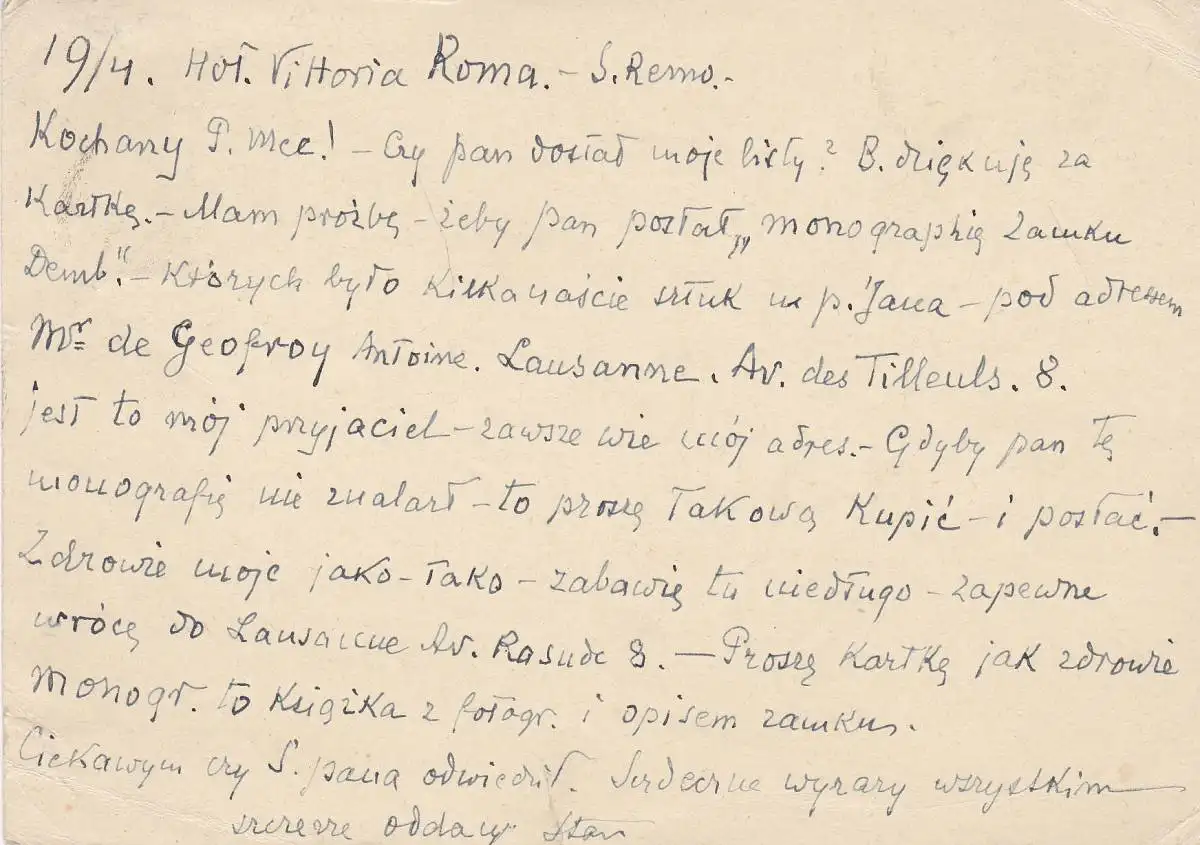 19/4. Hot. Vittoria Roma. – S. Remo.-
Kochany P. Mec! – Czy pan dostał moje listy? B. dziękuję za
Kartkę. – Mam prożbę – żeby pan posłał „monographię Zamku
Demb." – Których było kilkanaście sztuk u p. Jana – pod adressem
Mr de Geofroy Antoine. Lausanne. Av. des Tilleuls. 8.
jest to mój przyjaciel – zawsze wie mój adres. – Gdyby pan tę
monografię nie znalazł – to proszę takową Kupić – i posłać. –
Zdrowie moje jako-tako – zabawię tu niedługo – zapewne
wrócę do Lausanne Av. Rasude 8. – Proszę Kartkę jak zdrowie
Monogr. to Książka z fotogr. i opisem zamku.
Ciekawym czy S. pana odwiedził. Serdeczne wyrazy wszystkim
szczerze oddany Stan